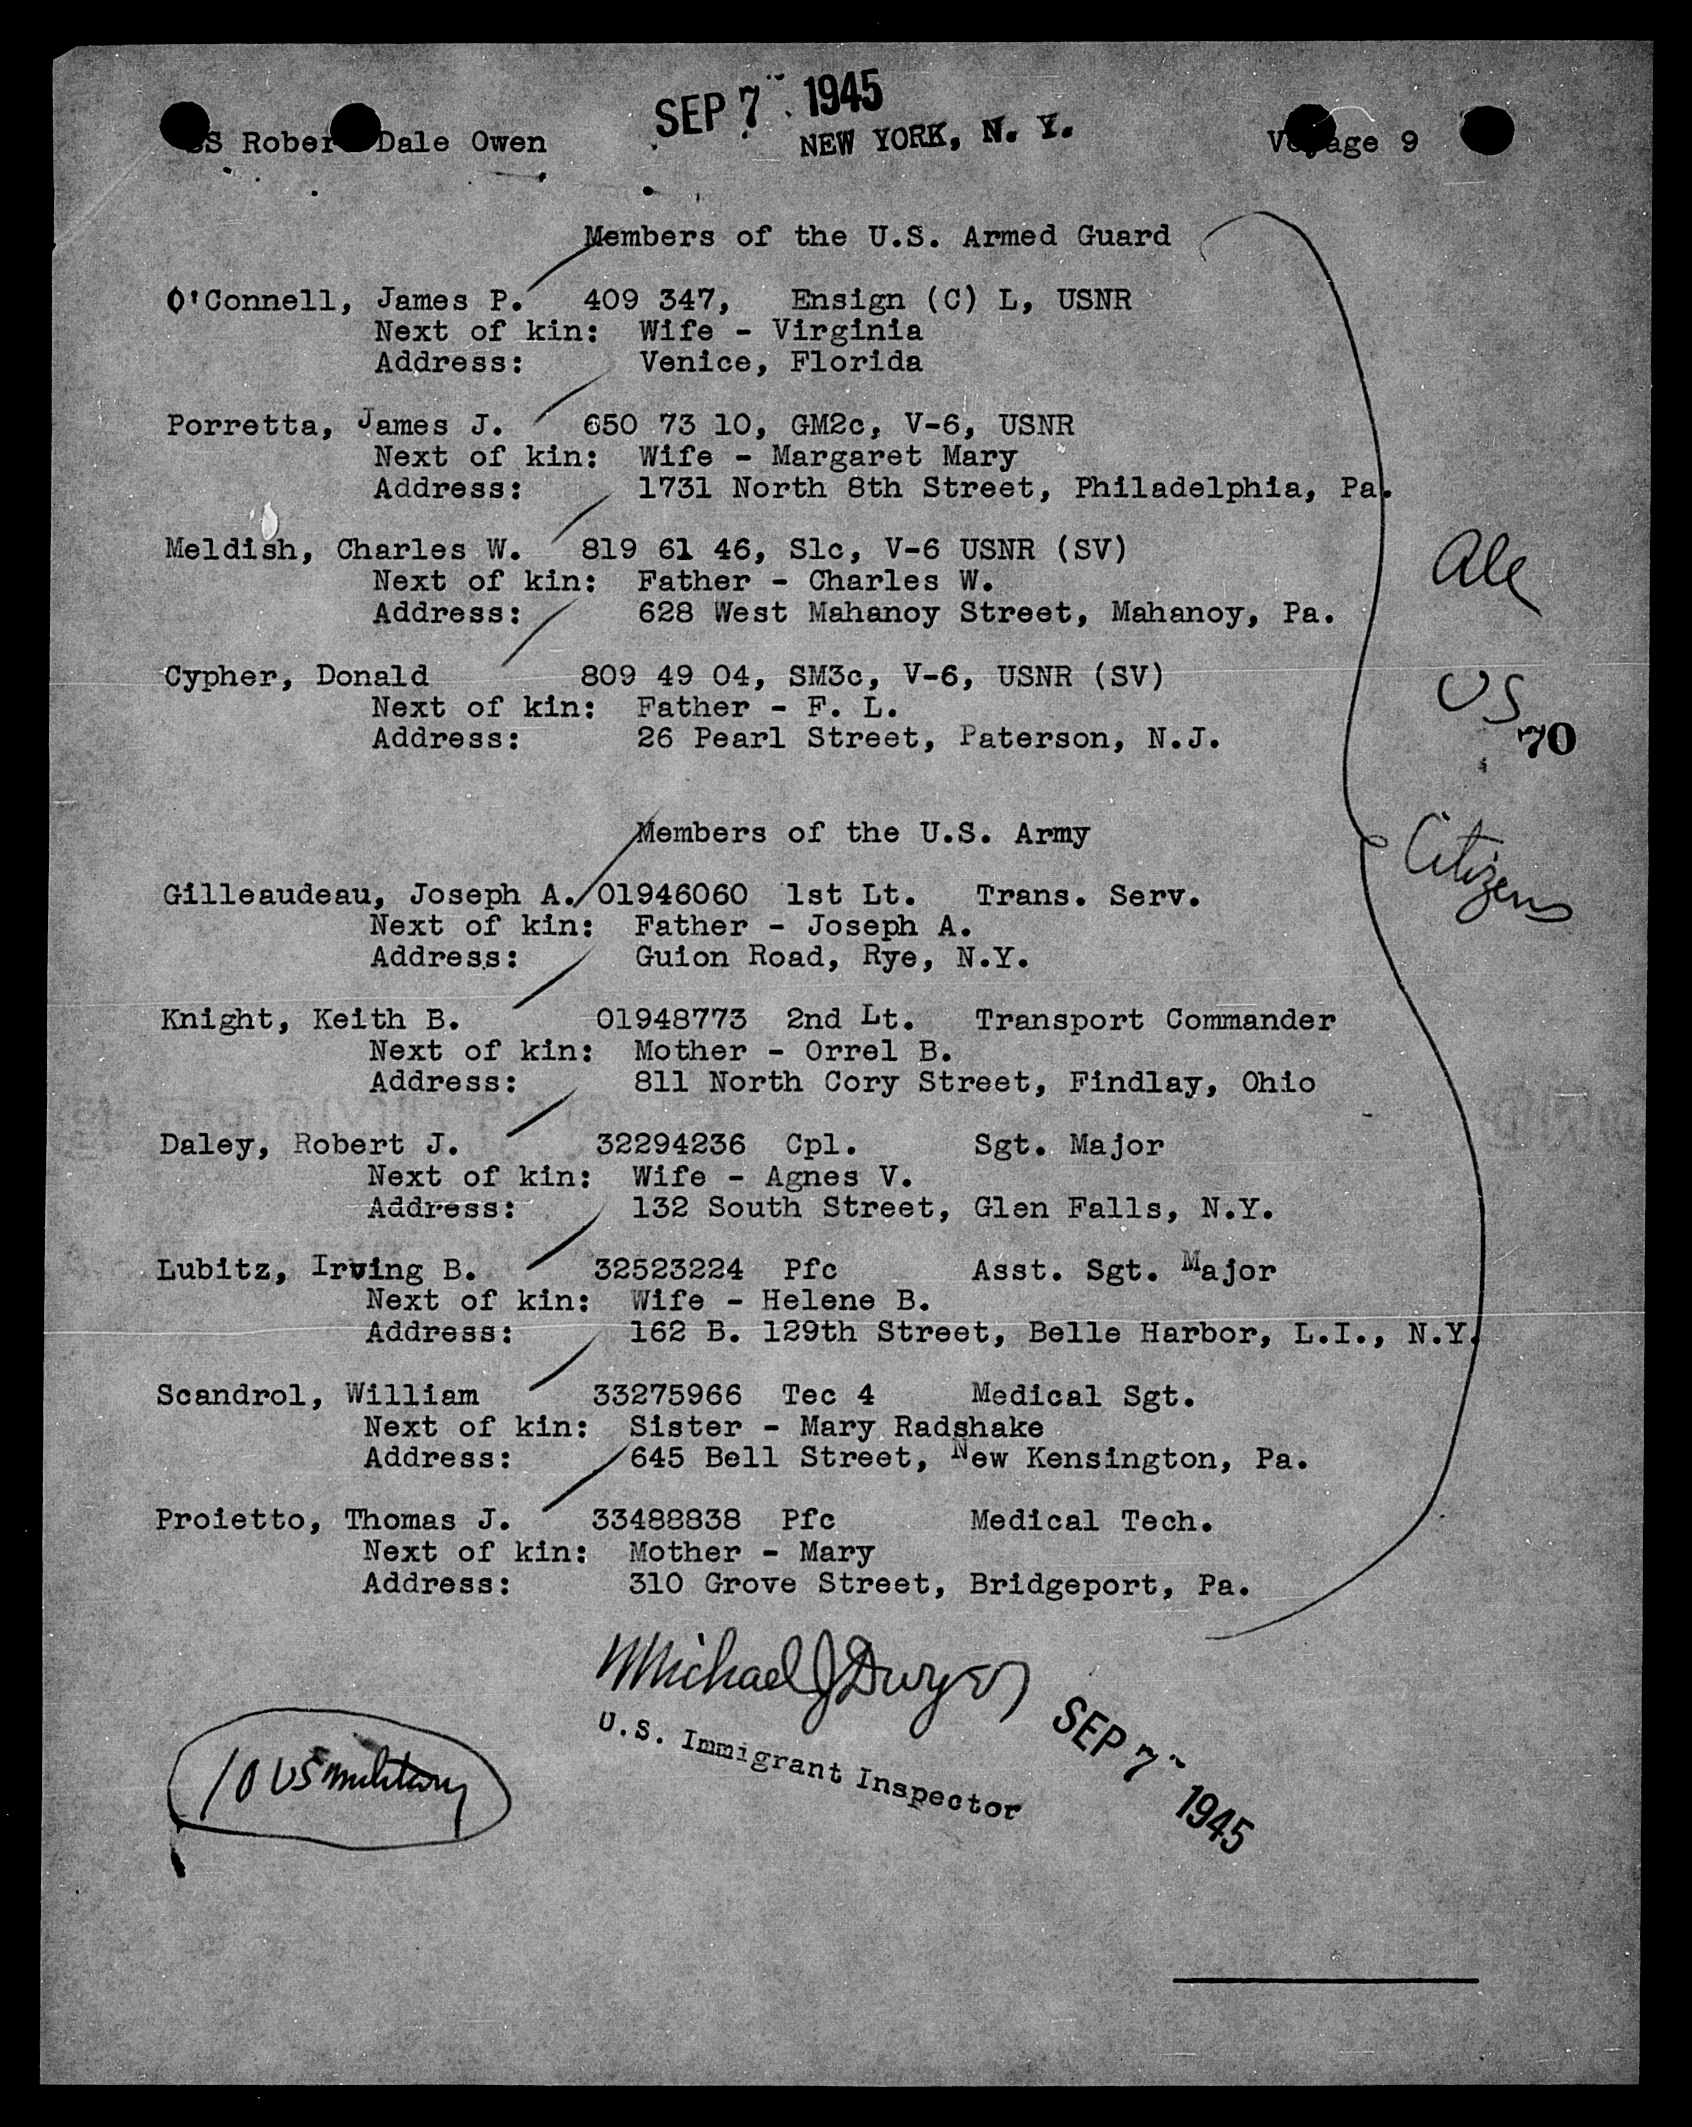 SEP 7 1945
SS Robert Dale Owen NEW YORK, N. Y. Voyage 9
Members of the U.S. Armed Guard
O'Connell, James P. 409 347, Ensign (C) L, USNR
Next of kin: Wife - Virginia
Address: Venice, Florida
Porretta, James J. 650 73 10, GM2c, V-6, USNR
Next of kin: Wife - Margaret Mary
Address: 1731 North 8th Street, Philadelphia, Pa.
Meldish, Charles W. 819 61 46, S1c, V-6 USNR (SV)
Next of kin: Father - Charles W.
Address: 628 West Mahanoy Street, Mahanoy, Pa.
Cypher, Donald 809 49 04, SM3c, V-6, USNR (SV)
Next of kin: Father - F. L.
Address: 26 Pearl Street, Paterson, N.J.
All
US
70
Citizens
Members of the U.S. Army
Gilleaudeau, Joseph A. 01946060 1st Lt. Trans. Serv.
Next of kin: Father - Joseph A.
Address: Guion Road, Rye, N.Y.
Knight, Keith B. 01948773 2nd Lt. Transport Commander
Next of kin: Mother - Orrel B.
Address: 811 North Cory Street, Findlay, Ohio
Daley, Robert J. 32294236 Cpl. Sgt. Major
Next of kin: Wife - Agnes V.
Address: 132 South Street, Glen Falls, N.Y.
Lubitz, Irving B. 32523224 Pfc Asst. Sgt. Major
Next of kin: Wife - Helene B.
Address: 162 B. 129th Street, Belle Harbor, L.I., N.Y.
Scandrol, William 33275966 Tec 4 Medical Sgt.
Next of kin: Sister - Mary Radshake
Address: 645 Bell Street, New Kensington, Pa.
Proietto, Thomas J. 33488838 Pfc Medical Tech.
Next of kin: Mother - Mary
Address: 310 Grove Street, Bridgeport, Pa.
Michael J Dwyer
U.S. Immigrant Inspector
SEP 7 1945
10 US military